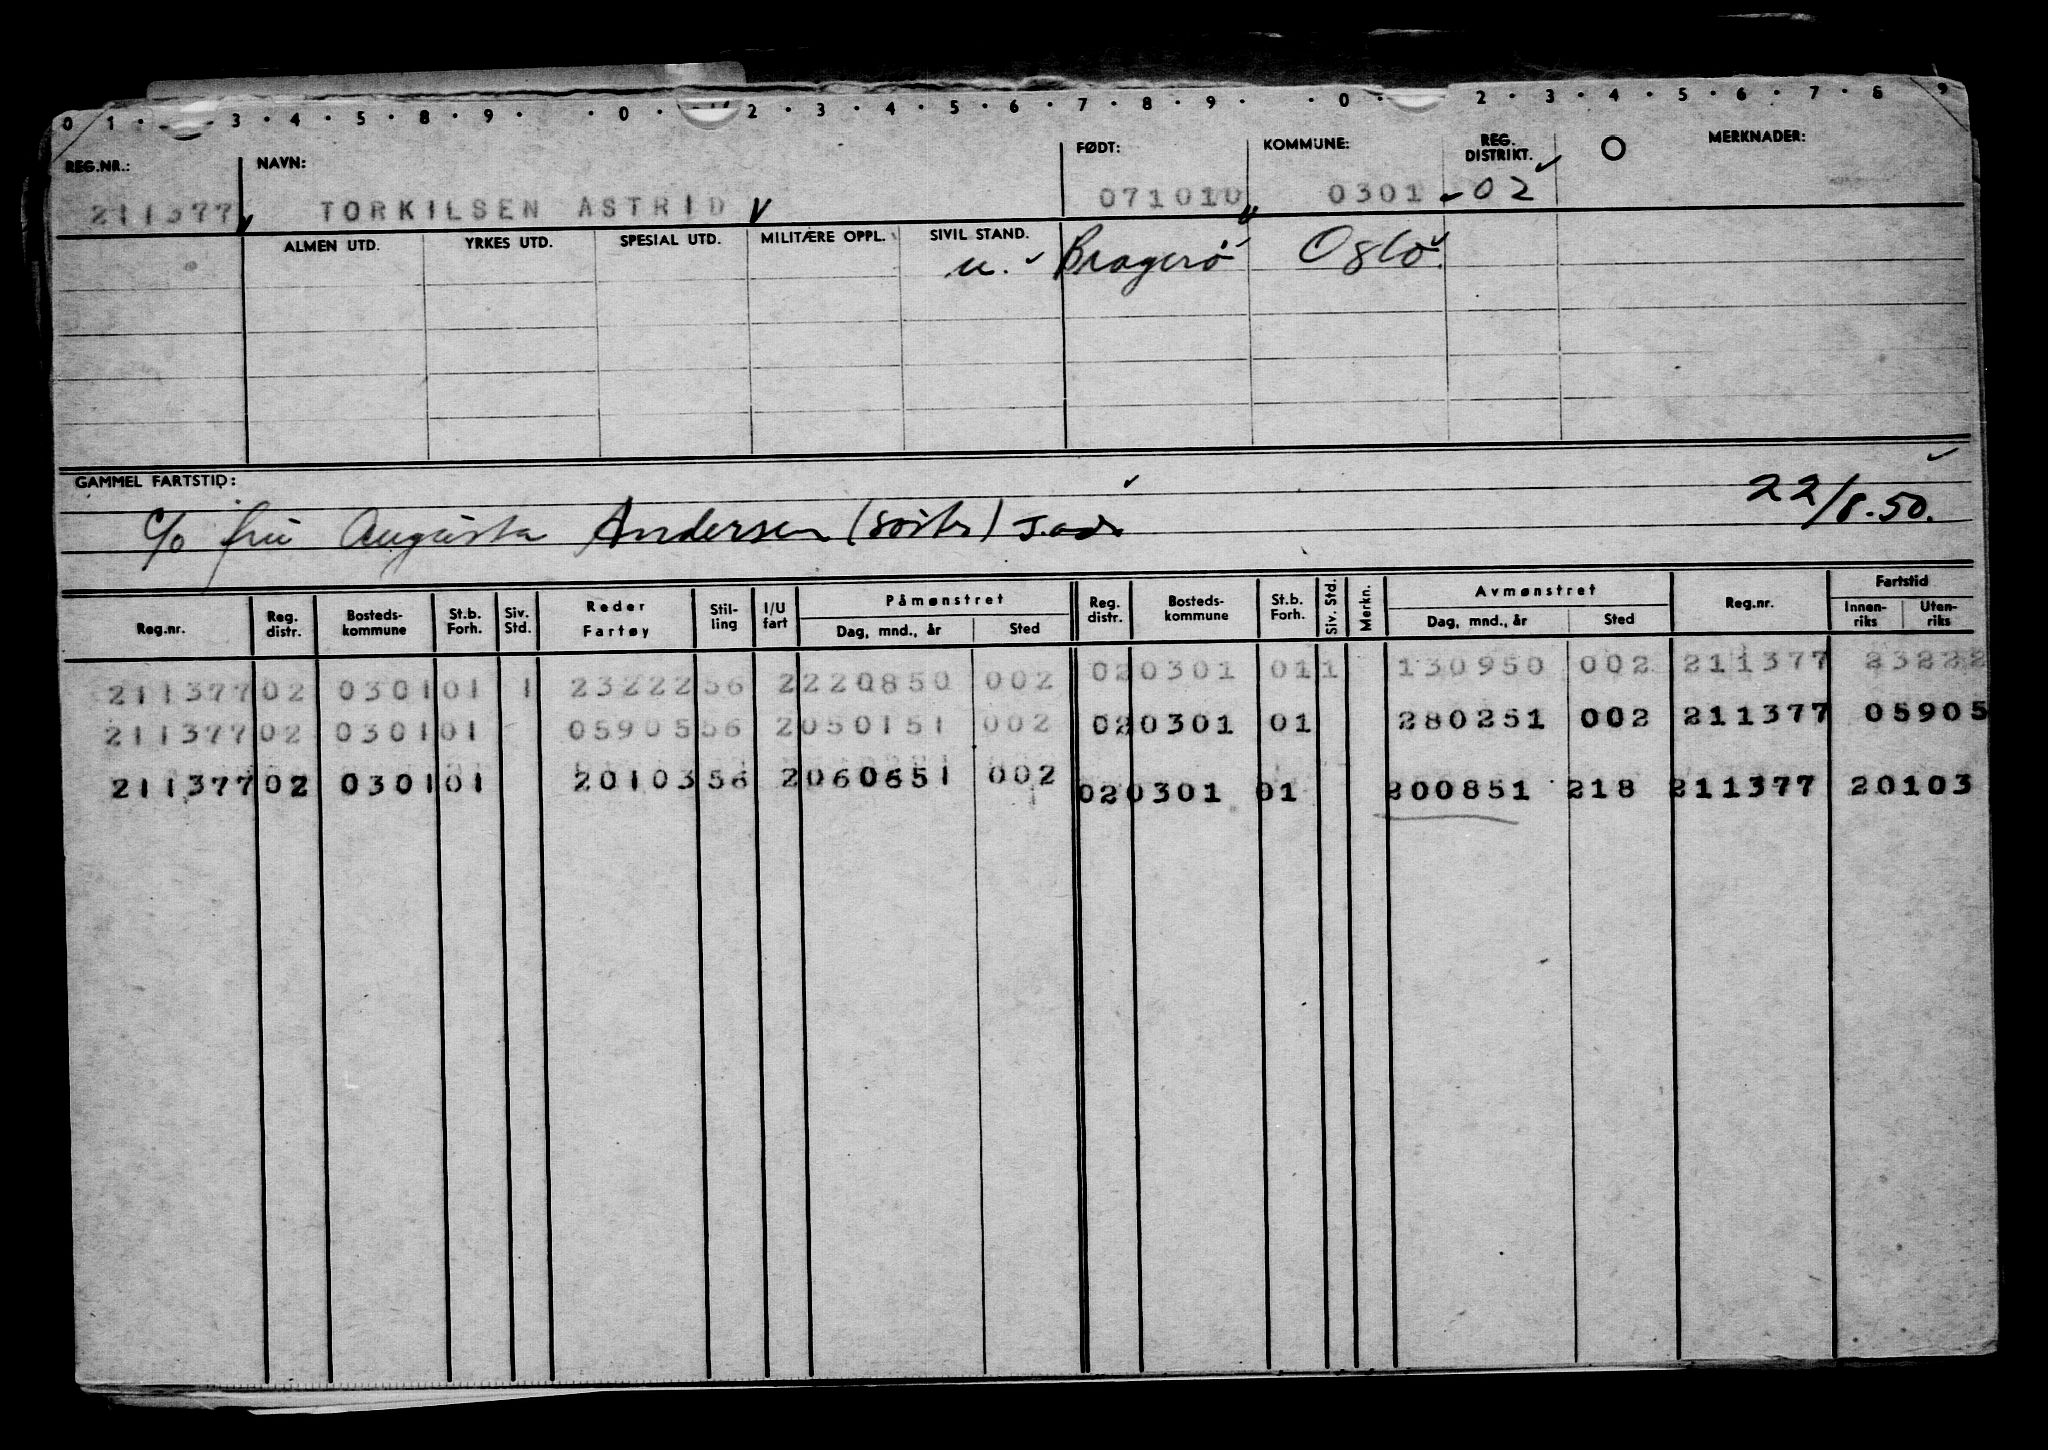 0 1 · 3 · 4 · 5 · 8 · 9 · · 0 · 2 · 3 · 4 · 5 · 6 · 7 · 8 · 9 · · 0 · 2 · 3 · 4 · 5 · 6 · 7 · 8 9
REG.NR.: NAVN: FØDT: KOMMUNE: REG. DISTRIKT. O MERKNADER:
211377 TORKILSEN ASTRID 071010 0301 -02
ALMEN UTD. YRKES UTD. SPESIAL UTD. MILITÆRE OPPL. SIVIL STAND.
u. Bragerö Oslo.
GAMMEL FARTSTID:
c/o fru Augusta Andersen 22/8-50.
Reg.nr. Reg. distr. Bosteds-kommune St.b. Forh. Siv. Std. Reder Fartøy Stil-ling I/U fart Påmønstret Dag, mnd., år Sted Reg. distr. Bosteds-kommune St.b. Forh. Siv. Std. Merkn. Avmønstret Dag, mnd., år Sted Reg.nr. Fartstid Innen-riks Uten-riks
211377 02 0301 01 1 23222 56 2 220850 002 02 0301 01 1 130950 002 211377 23222
211377 02 0301 01 05905 56 2 050151 002 02 0301 01 280251 002 211377 05905
211377 02 0301 01 20103 56 2 060651 002 02 0301 01 200851 218 211377 20103